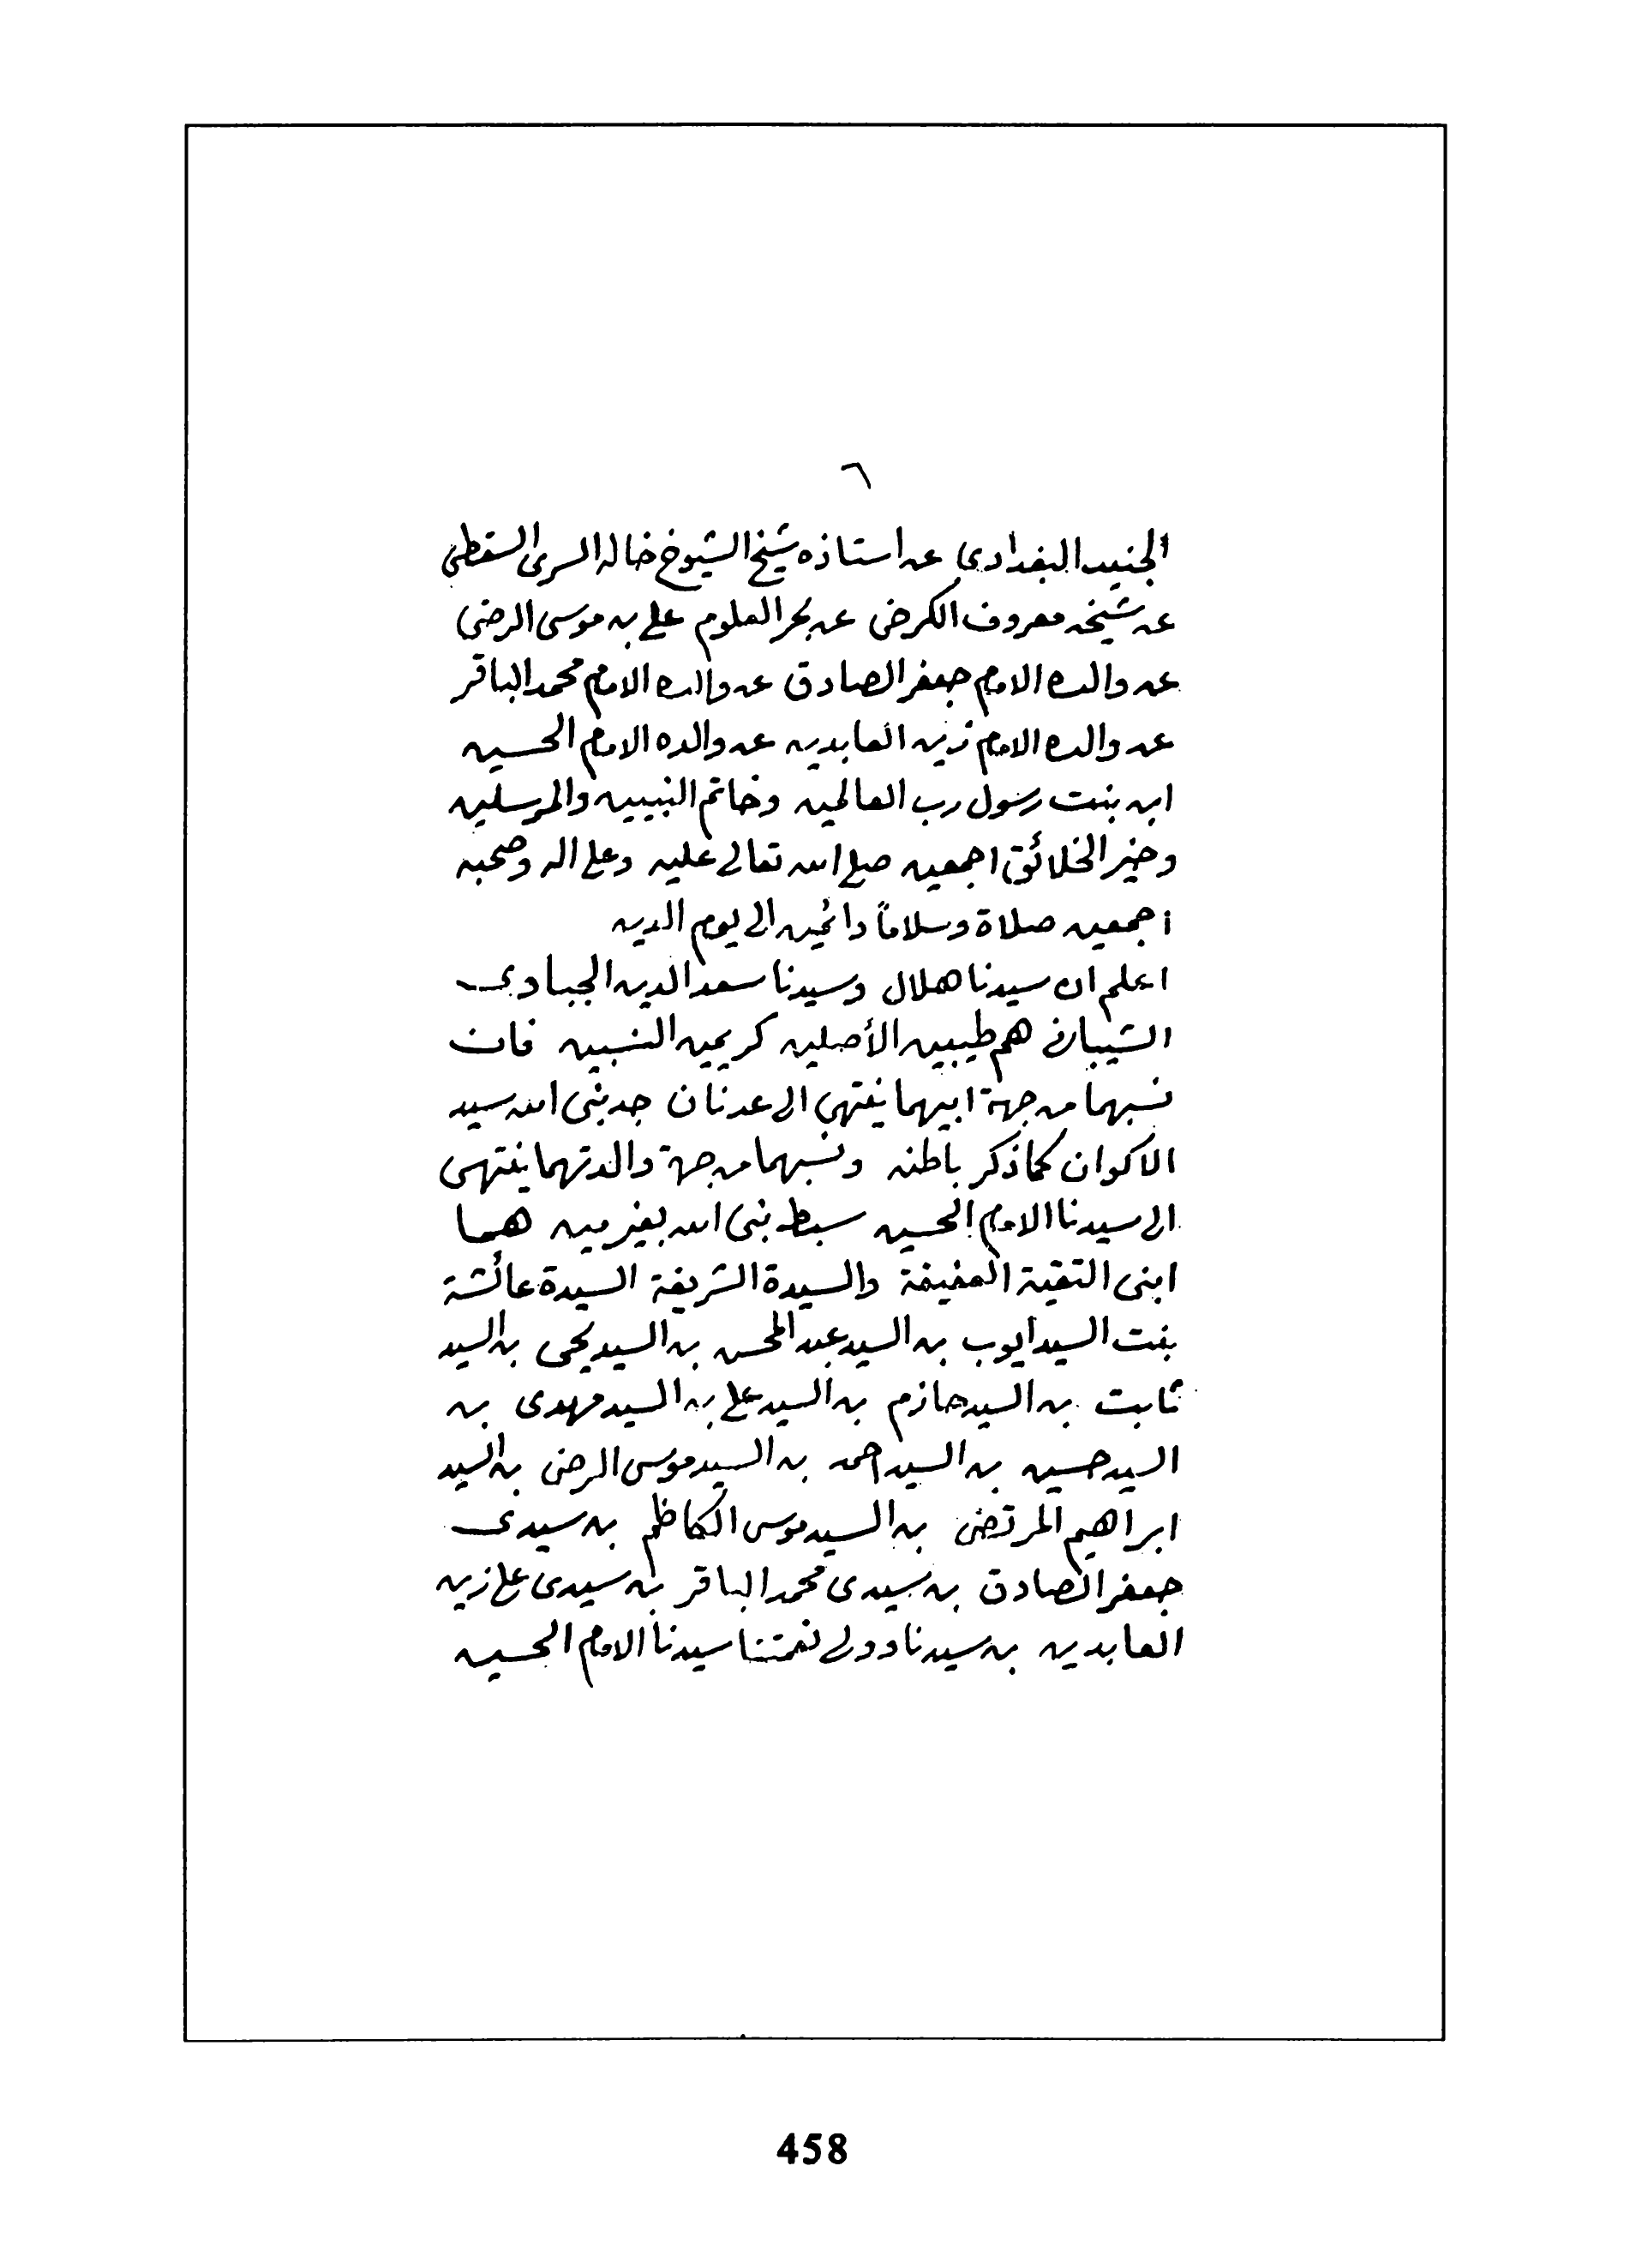 ٦
الجنيد البغدادى عن استاذه شيخ الشيوخ خاله السرى السقطى
عن شيخه معروف الكرخى عن بحر العلوم على بن موسى الرضى
عن والده الامام جعفر الصادق عن والده الامام محمد الباقر
عن والده الامام زين العابدين عن والده الامام الحسين
ابن بنت رسول رب العالمين وخاتم النبيين والمرسلين
وخير الخلائق اجمعين صلى الله تعالى عليه وعلى اله وصحبه
اجمعين صلاة وسلاماً دائمين الى يوم الدين
اعلم ان سيدنا هلال وسيدنا سعد الدين الجباوى
الشيبانى هم طيبين الأصلين كريمين النسبين فان
نسبهما من جهة ابيهما ينتهى الى عدنان جد نبى الله سيد
الاكوان كما ذكر باطنه ونسبهما من جهة والدتهما ينتهى
الى سيدنا الامام الحسين سبط نبى الله بغير مين هما
ابنى التقية العفيفة والسيدة الشريفة السيدة عائشة
بنت السيد أيوب بن السيد عبد المحسن بن السيد يحى بن السيد
ثابت بن السيد حازم بن السيد على بن السيد مهدى بن
السيد حسين بن السيد احمد بن السيد موسى الرضى بن السيد
ابراهيم المرتضى بن السيد موسى الكاظم بن سيدى
جعفر الصادق بن سيدى محمد الباقر بن سيدى على زين
العابدين بن سيدنا وولى نعمتنا سيدنا الامام الحسين
458